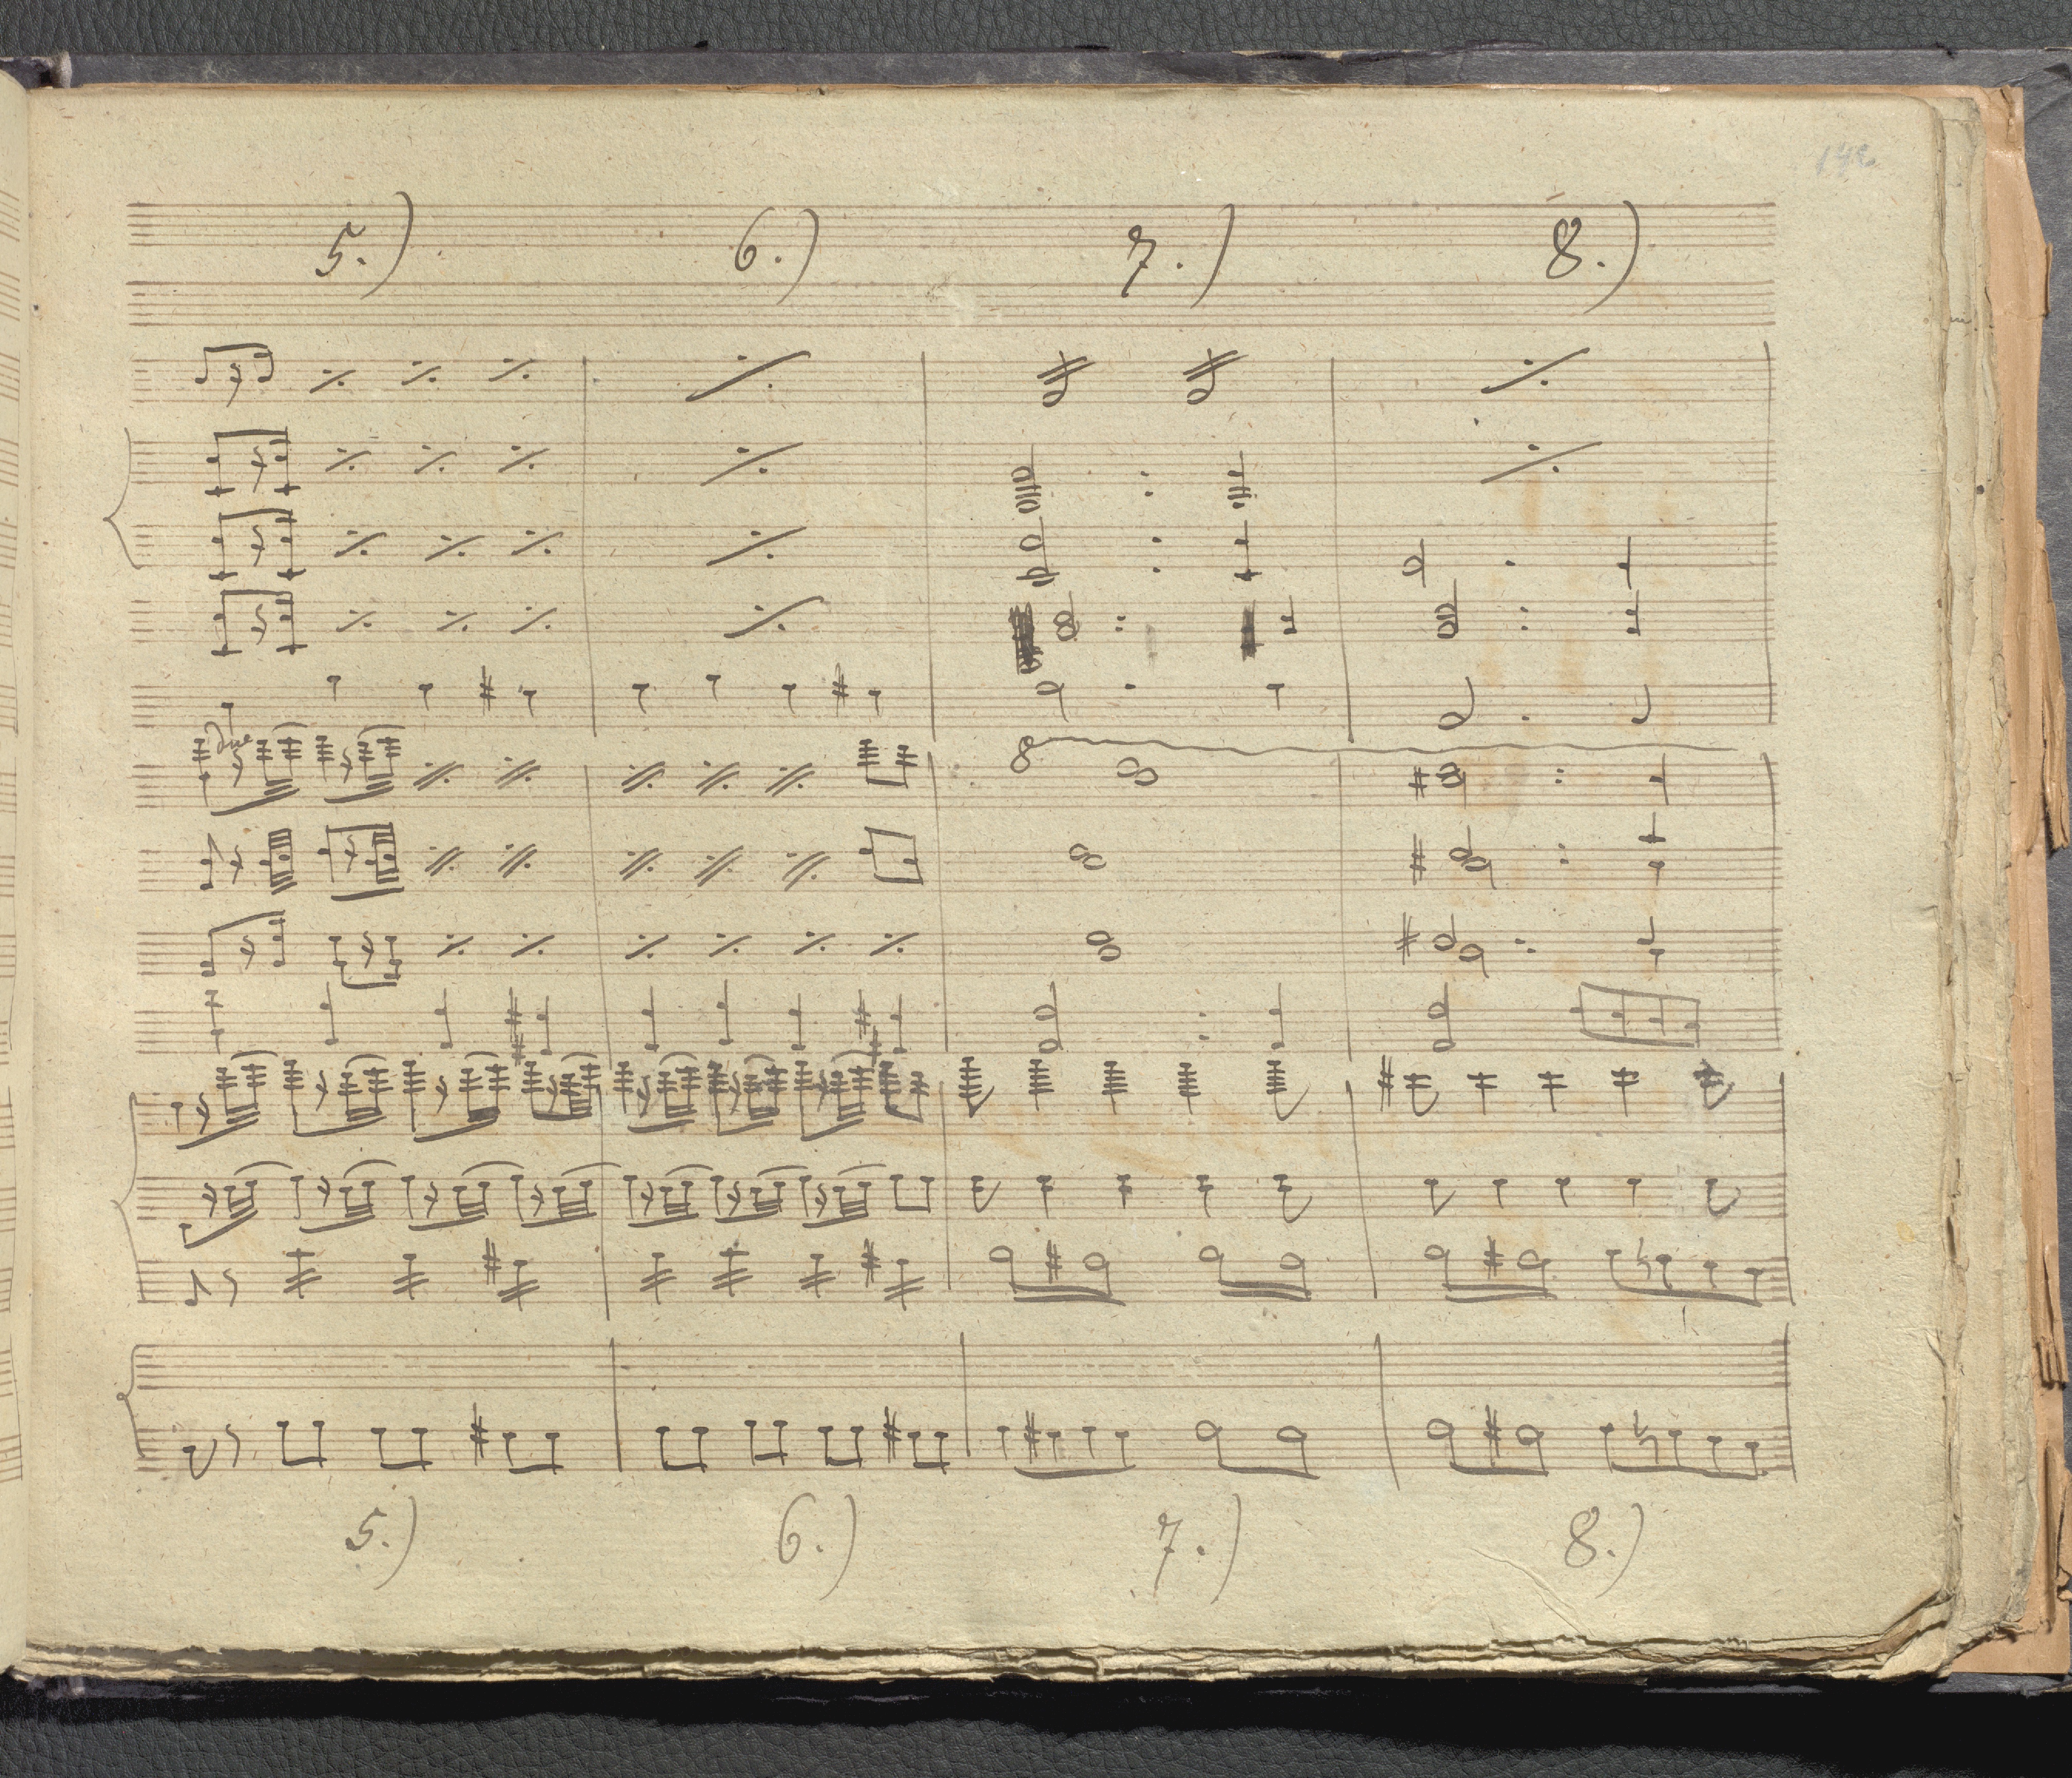 5.) 6.) 7.) 8.)
8
5.) 6.) 7.) 8.)